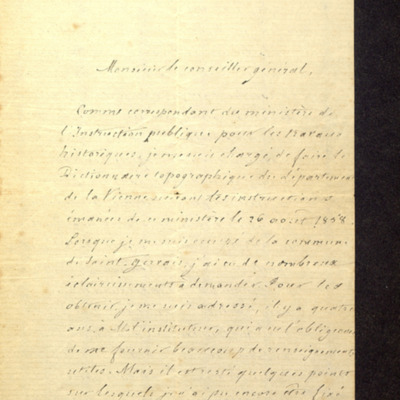 Monsieur le conseiller général,
Comme correspondant du ministère de
l'Instruction publique pour les travaux
historiques, je me suis chargé de faire le
Dictionnaire topographique du département
de la Vienne suivant les instructions
émanées de ce ministère le 26 août 1858.
Lorsque je me suis occupé de la commune
de Saint-Gervais, j'ai eu de nombreux
éclaircissements à demander. Pour les
obtenir je me suis adressé, il y a quatre
ans à M. l'instituteur, qui a eu l'obligeance
de me fournir beaucoup de renseignements
utiles. Mais il est resté quelques points
sur lesquels je n'ai pu encore être fixé